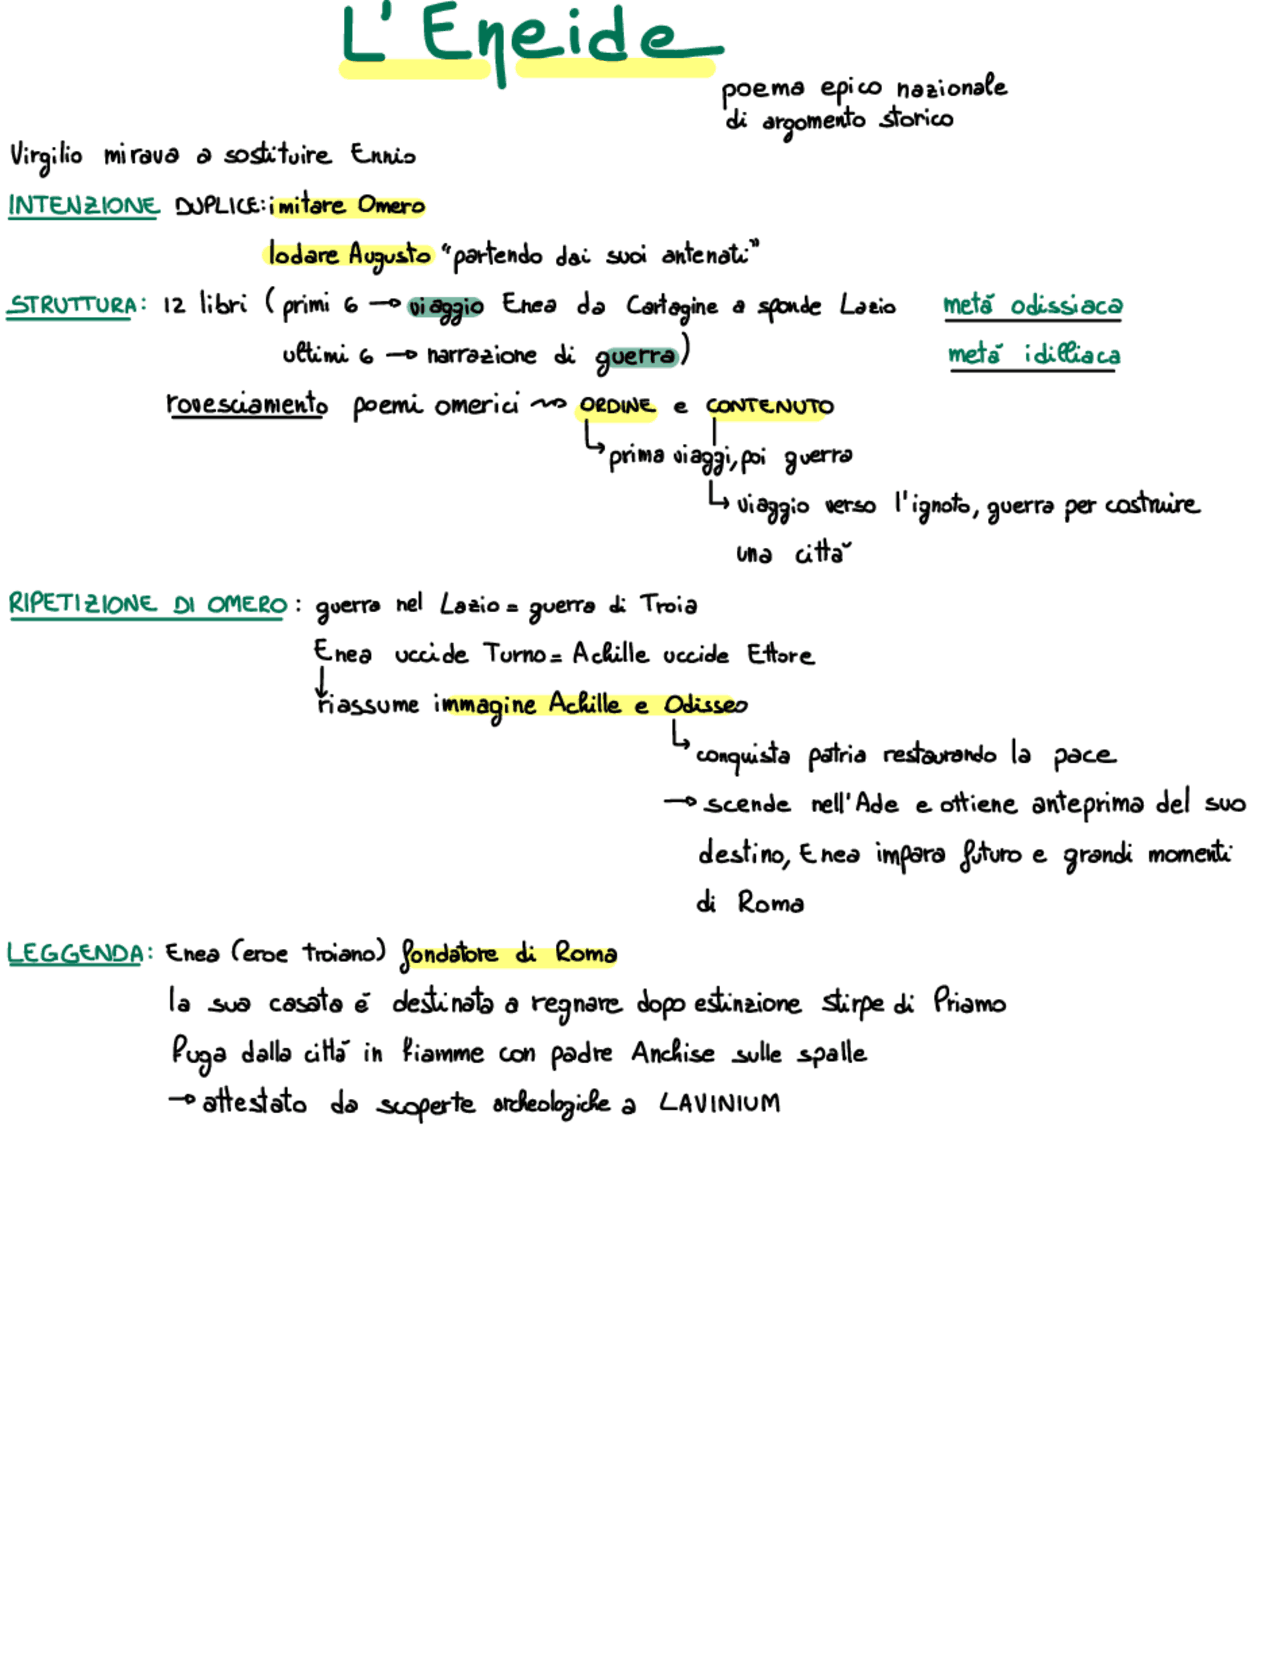 L'Eneide
poema epico nazionale
di argomento storico
Virgilio mirava a sostituire Ennio
INTENZIONE DUPLICE: imitare Omero
lodare Augusto "partendo dai suoi antenati"
STRUTTURA: 12 libri (primi 6 → viaggio Enea da Cartagine a sponde Lazio metá odissiaca
ultimi 6 → narrazione di guerra) metá idilliaca
rovesciamento poemi omerici ~> ORDINE e CONTENUTO
↳ prima viaggi, poi guerra
↳ viaggio verso l'ignoto, guerra per costruire
una cittá
RIPETIZIONE DI OMERO: guerra nel Lazio = guerra di Troia
Enea uccide Turno = Achille uccide Ettore
↓
riassume immagine Achille e Odisseo
↳ conquista patria restaurando la pace
→ scende nell'Ade e ottiene anteprima del suo
destino, Enea impara futuro e grandi momenti
di Roma
LEGGENDA: Enea (eroe troiano) fondatore di Roma
la sua casata é destinata a regnare dopo estinzione stirpe di Priamo
Fuga dalla cittá in fiamme con padre Anchise sulle spalle
→ attestato da scoperte archeologiche a LAVINIUM